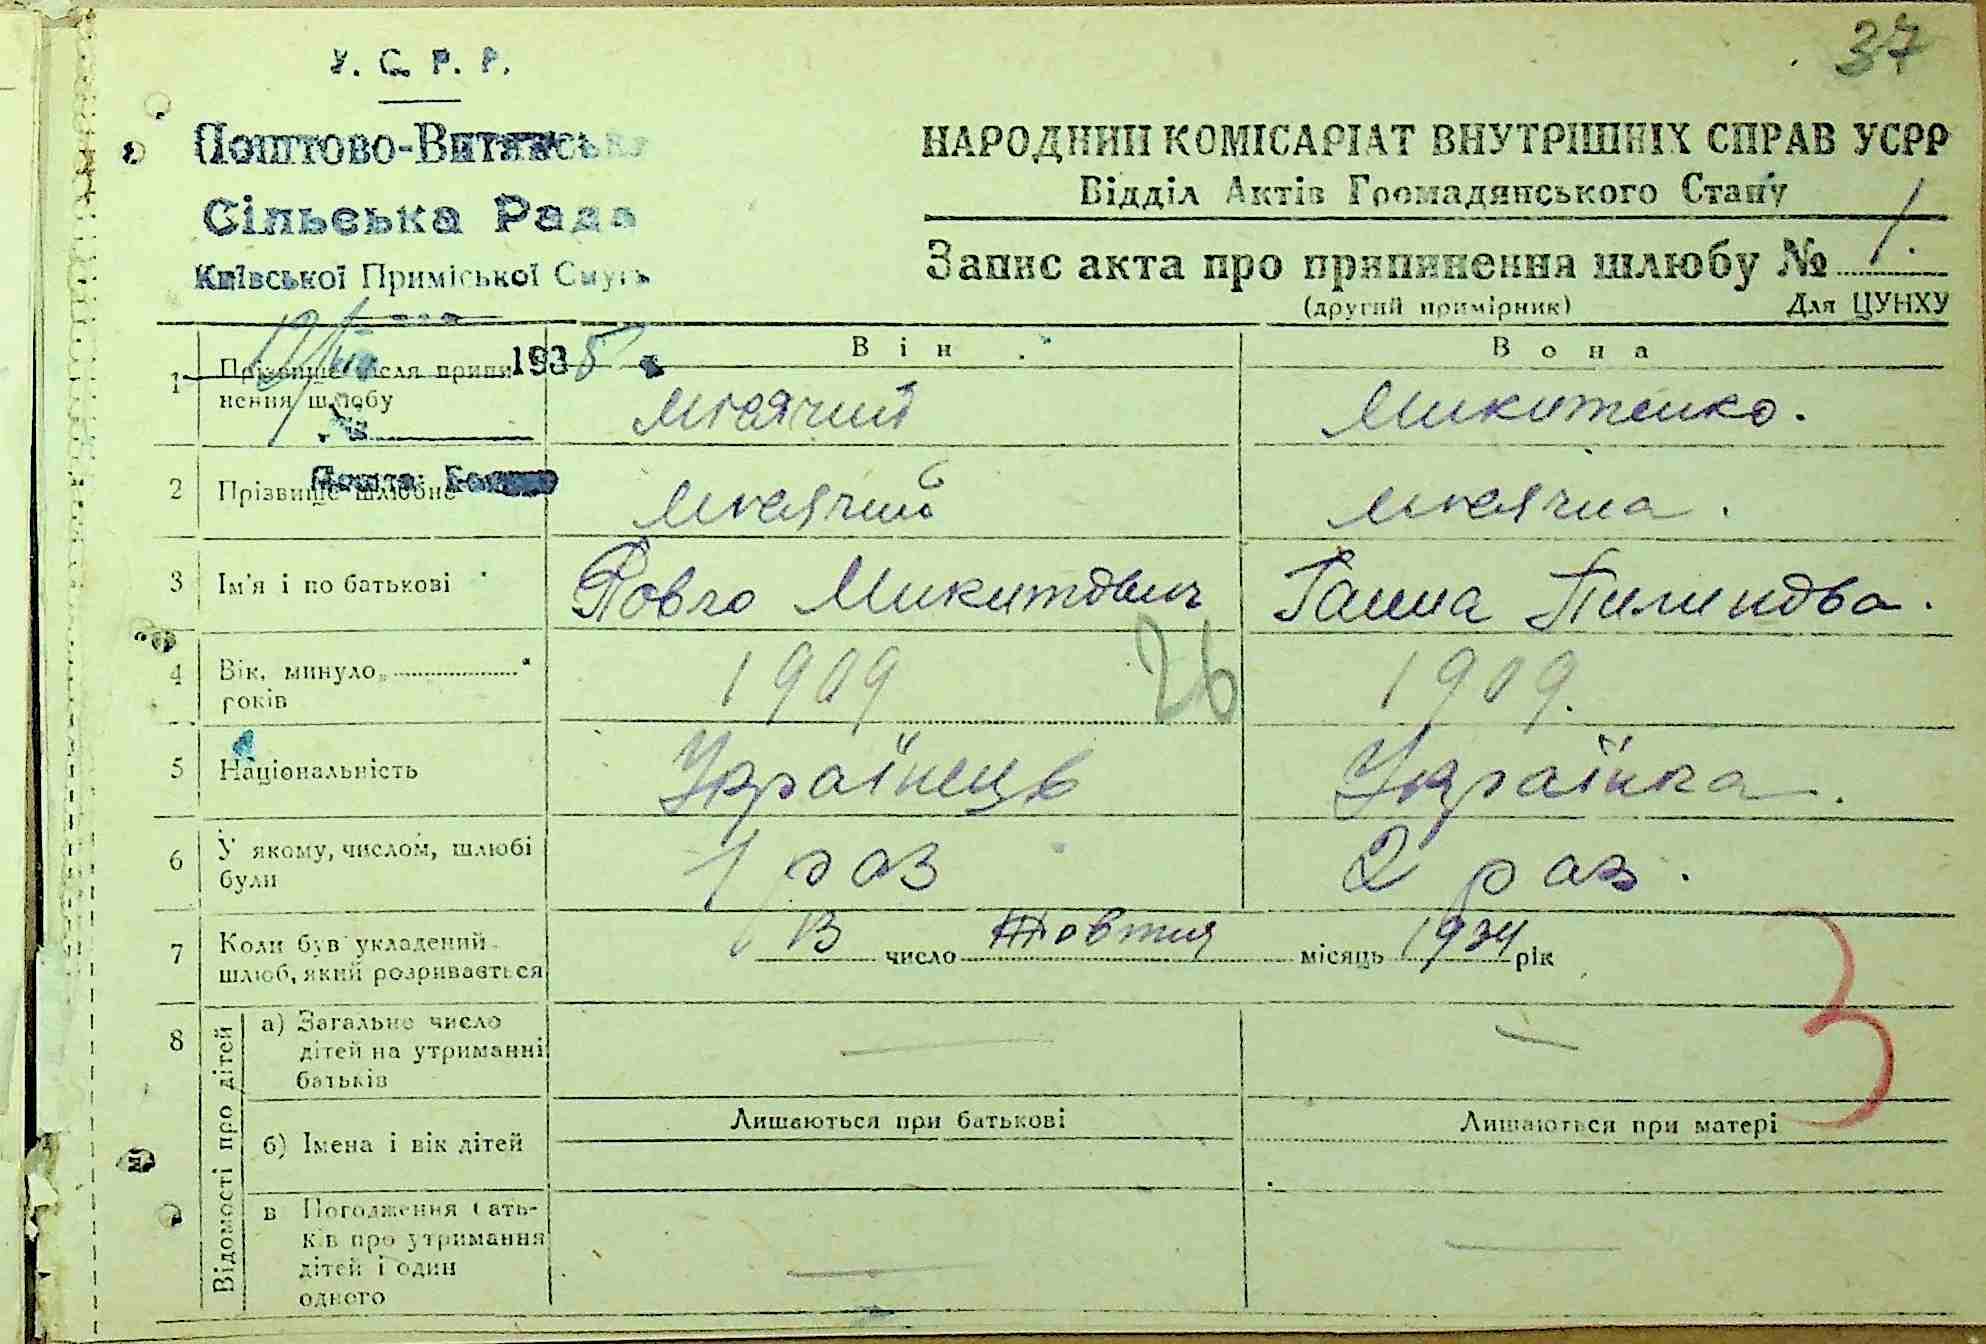 37
У. С. Р. Р.
Поштово-Витавська
Сільська Рада
Київської Приміської Смуги
1935
НАРОДНИЙ КОМІСАРІАТ ВНУТРІШНІХ СПРАВ УСРР
Відділ Актів Громадянського Стану
Запис акта про припинення шлюбу № 1.
(другий примірник) Для ЦУНХУ
Він Вона
1 Прізвище після припи-
нення шлюбу Мкячий Микитенко.
2 Прізвище шлюбне Мкячий Мкячна.
Пошта
3 Ім'я і по батькові Повло Микитович Ганна Пилиповa.
4 Вік, минуло
років 1909 26 1909.
5 Національність Українець Українка.
6 У якому, числом, шлюбі
були 1 раз 2 раз.
7 Коли був укладений
шлюб, який розривається 13 число Жовтня місяць 1934 рік
3
8 Відомості про дітей
а) Загальне число
дітей на утриманні
батьків — —
Лишаються при батькові Лишаються при матері
б) Імена і вік дітей
в Погодження бать-
ків про утримання
дітей і один
одного — —